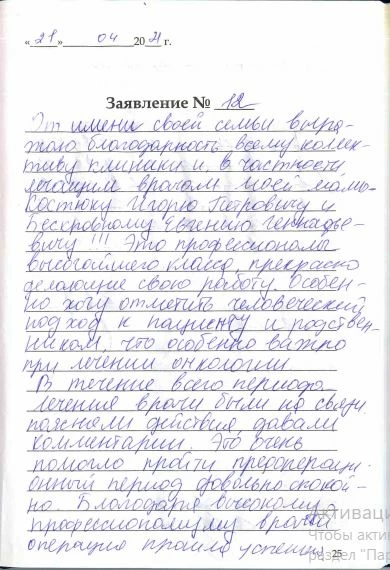 «21» 04 2021 г.
Заявление № 12
От имени своей семьи выра-
жаю благодарность всему коллек-
тиву клиники и, в частности
лечащим врачам моей мамы
Костюку Игорю Петровичу и
Бескровному Евгению Геннадье-
вичу!!! Это профессионалы
высочайшего класса, прекрасно
делающие свою работу. Особен-
но хочу отметить человеческий
подход к пациенту и родствен-
никам, что особенно важно
при лечении онкологии.
В течение всего периода
лечения врачи были на связи,
поясняли действия, давали
комментарии. Это очень
помогло пройти предопераци-
онный период довольно спокой-
но. Благодаря высокому
профессионализму врачей
операция прошла успешно
25
Активаци
Чтобы акти
раздел "Пар